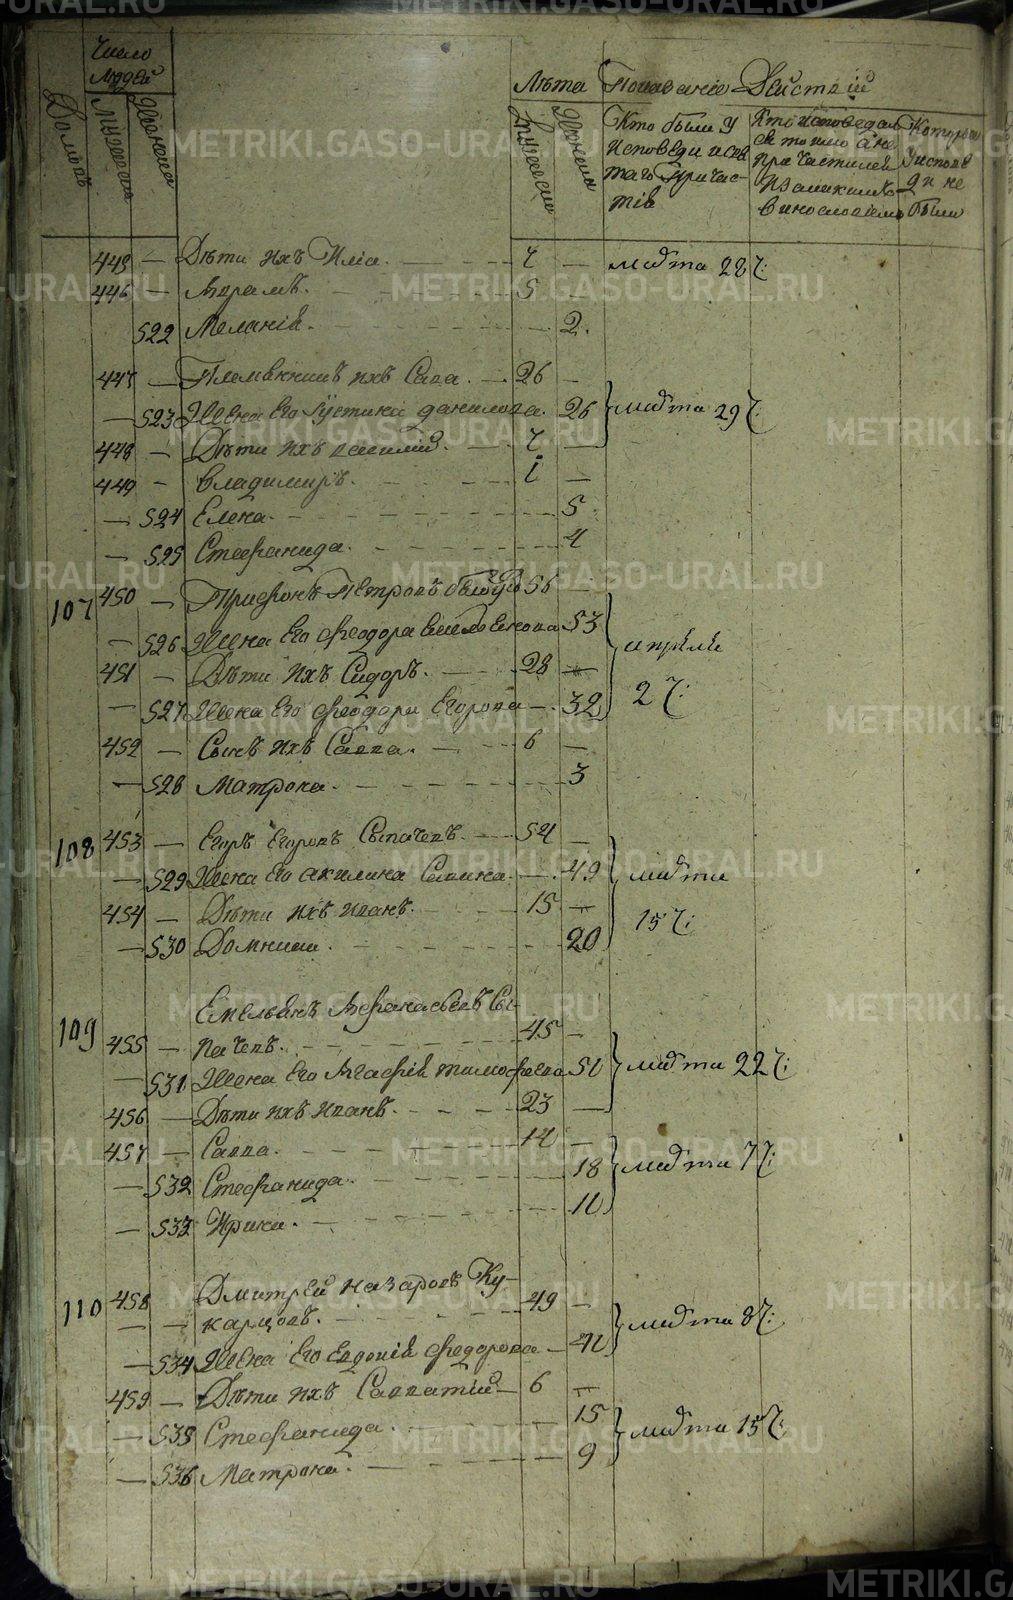 Число Людей
Домовъ Мужеска Женска
Лѣта Показаніе Действій
Мужеска Женска
Кто были у исповеди и свѧтаго Причастія
Кто исповедался токмо а не причастился
Которые у исповеди не были
445 — Дѣти ихъ Илiа. 7 — марта 28 Ч:
446 — Аврамъ. 5 —
522 Меланія. 2.
447 — Племянникъ ихъ Савва. 26 —
— 523 Жена Его Іустина данилова. 26 марта 29 Ч:
448 — Дѣти ихъ василий. 7 —
449 — владимиръ. 1 —
— 524 Елена. 5
— 525 Стефанида. 4
107 450 — Трифонъ Петровъ 56 —
— 526 Жена Его феодора 53 апреля
451 — Дѣти ихъ Сидоръ. 28 —
— 527 Жена Его феодора Егорова — 32 2 Ч:
452 — Сынъ ихъ Савва. 6 —
— 528 Матрона. 3
108 453 — Егоръ Егоровъ Сыпачевъ. 54 —
— 529 Жена Его акилина Савина. — 49 марта
454 — Дѣти ихъ иванъ. 15 — 15 Ч:
— 530 Домника. 20
109 Емельянъ Афанасьевъ Сы-
455 — пачевъ. 45 —
— 531 Жена Его Агафія тимофеева 51 марта 22 Ч:
456 — Дѣти ихъ иванъ. 23 —
457 — Савва. 14 —
— 532 Стефанида. 18 марта 7 Ч:
— 533 Ирина. 11
110 458 Дмитрей назаровъ Ку-
— — карцовъ. 49 —
— 534 Жена Его Евдокія федорова — 41 марта 8 Ч:
459 — Дѣти ихъ Савватий — 6 —
— 535 Стефанида. 15 марта 15 Ч:
— 536 Матрона. 9
METRIKI.GASO-URAL.RU